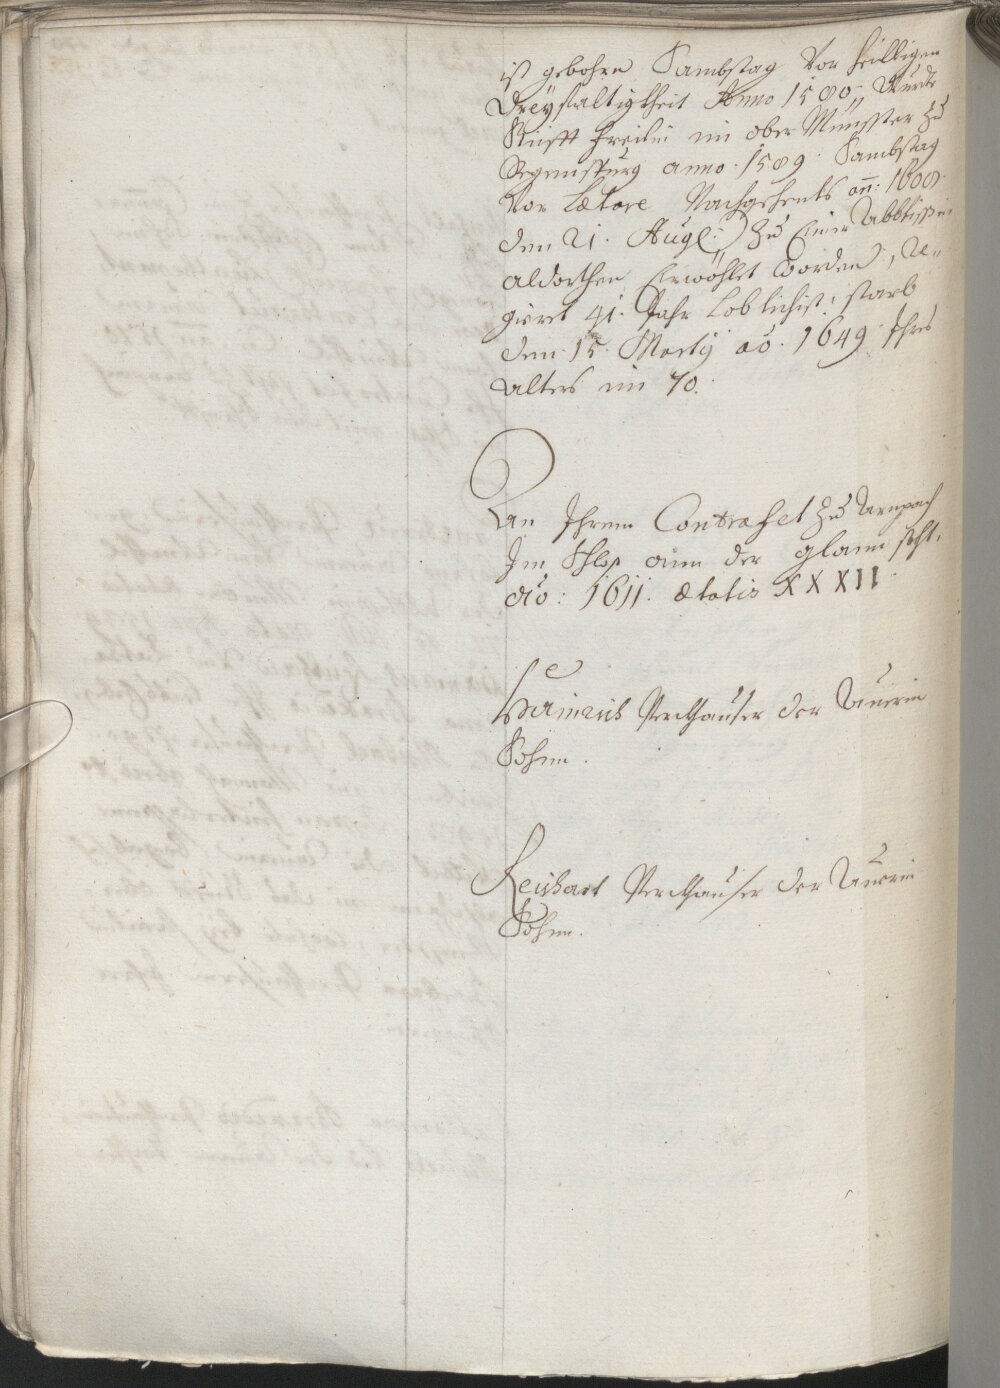 ist gebohrn Sambstag Vor heilligen
Dreyfaltigkheit Anno 1580. Wurdte
Stüfft freilin im ober Münster zu
Regenspurg anno. 1589. Sambstag
Vor Lætare Nachgehents an: 1608.
den 21. Aug: zu Einer Abbtissin
aldorthen Erwöhlet worden, Re„
gieret 41. Jahr Loblichist: starb
den 15. Marty ao. 1649. Ihres
Alters im 70.
An Ihrem Contrafet zu Arnpach
Im Schlos ann der glann steht.
ao: 1611. ætatis XXXII.
Heinrich Perckhauser der Auerin
Sohnn.
Reichart Perckhauser der Auerin
Sohnn.